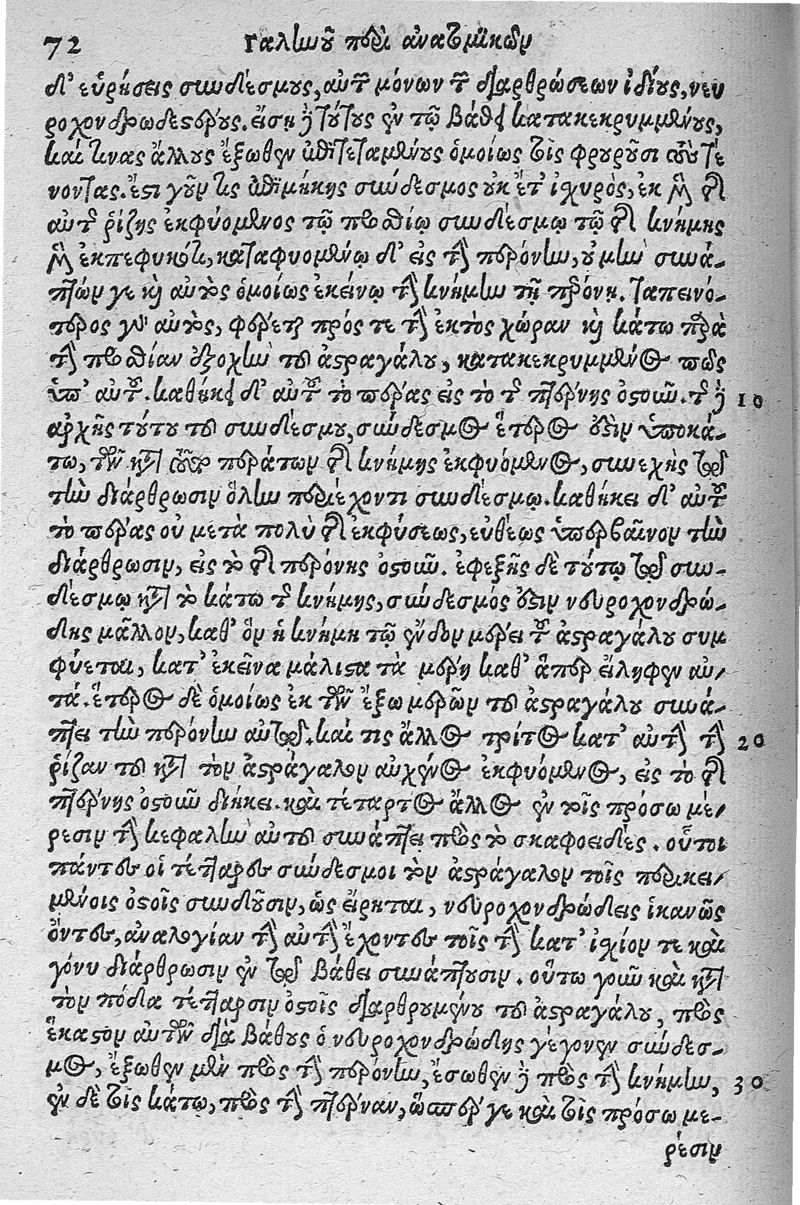 72 Γαλίωῦ περὶ ἀνατομικῶν
δι' εὑρήσεις συνδέσμους, αὐτῶν μόνων τῶν διαρθρώσεων ἰδίους, νευ
ροχονδρώδεις ὄντας. εἴσῃ δὲ τούτους ἐν τῷ βάθει κατακεκρυμμένους,
καί τινας ἄλλους ἔξωθεν ἐπιτεταμένους ὁμοίως τοῖς φρουροῦσι
νοντας. ἔστι γοῦν τις ἐπιμήκης σύνδεσμος οὐκ ἔτ' ἰχυρὸς, ἐκ μὲν τῆς
αὐτῆς ῥίζης ἐκφυόμενος τῷ προσθίῳ συνδέσμῳ τῷ τῆς κνήμης
μὲν ἐκπεφυκότι, καταφυομένῳ δ' εἰς τὴν περόνην, οὐ μὴν συνά-
πτων γε καὶ αὐτὸς ὁμοίως ἐκείνῳ τὴν κνήμην τῇ περόνῃ. ταπεινό-
τερος γὰρ αὐτὸς, φέρεται πρός τε τὴν ἐκτὸς χώραν καὶ κάτω παρὰ
τὴν προσθίαν ἐξοχὴν τοῦ ἀστραγάλου, κατακεκρυμμένος πως
ὑπ' αὐτοῦ. καθήκει δ' αὐτοῦ τὸ πέρας εἰς τὸ τῆς πτέρνης ὀστοῦν. τῆς δὲ 10
ἀρχῆς τούτου τοῦ συνδέσμου, σύνδεσμος ἕτερος ἐστὶν ὑποκά-
τω, τῶν κατὰ τῶν περάτων τῆς κνήμης ἐκφυόμενος, συνεχὴς τῷ
τὴν διάρθρωσιν ὅλην περιέχοντι συνδέσμῳ. καθήκει δ' αὐτοῦ
τὸ πέρας οὐ μετὰ πολὺ τῆς ἐκφύσεως, εὐθέως ὑπερβαῖνον τὴν
διάρθρωσιν, εἰς τὸ τῆς περόνης ὀστοῦν. ἐφεξῆς δὲ τούτῳ τῷ συν-
δέσμῳ κατὰ τὸ κάτω τῆς κνήμης, σύνδεσμός ἐστιν νευροχονδρώ-
δης μᾶλλον, καθ' ὃν ἡ κνήμη τῷ ἔνδον μέρει τοῦ ἀστραγάλου συμ
φύεται, κατ' ἐκεῖνα μάλιστα τὰ μέρη καθ' ἅπερ εἴληφεν αὐ-
τά. ἕτερος δὲ ὁμοίως ἐκ τῶν ἔξω μερῶν τοῦ ἀστραγάλου συνά-
πτει τὴν περόνην αὐτῷ. καί τις ἄλλος τρίτος κατ' αὐτὴν τὴν 20
ῥίζαν τοῦ κατὰ τὸν ἀστράγαλον αὐχένος ἐκφυόμενος, εἰς τὸ τῆς
πτέρνης ὀστοῦν διήκει. καὶ τέταρτος ἄλλος ἐν τοῖς πρόσω μέ-
ρεσιν τὴν κεφαλὴν αὐτοῦ συνάπτει πρὸς τὸ σκαφοειδές. οὗτοι
πάντες οἱ τέτταρες σύνδεσμοι τὸν ἀστράγαλον τοῖς περικει-
μένοις ὀστοῖς συνδοῦσιν, ὡς εἴρηται, νευροχονδρώδεις ἱκανῶς
ὄντες, ἀναλογίαν τὴν αὐτὴν ἔχοντες τοῖς τὴν κατ' ἰχίον τε καὶ
γόνυ διάρθρωσιν ἐν τῷ βάθει συνάπτουσιν. οὕτω γοῦν καὶ κατὰ
τὸν πόδα τέτταρσιν ὀστοῖς διαρθρουμένου τοῦ ἀστραγάλου, πρὸς
ἕκαστον αὐτῶν διὰ βάθους ὁ νευροχονδρώδης γέγονεν σύνδεσ-
μος, ἔξωθεν μὲν πρὸς τὴν περόνην, ἔσωθεν δὲ πρὸς τὴν κνήμην, 30
ἐν δὲ τοῖς κάτω, πρὸς τὴν πτέρναν, ὥσπερ γε καὶ τοῖς πρόσω με-
ρέσιν